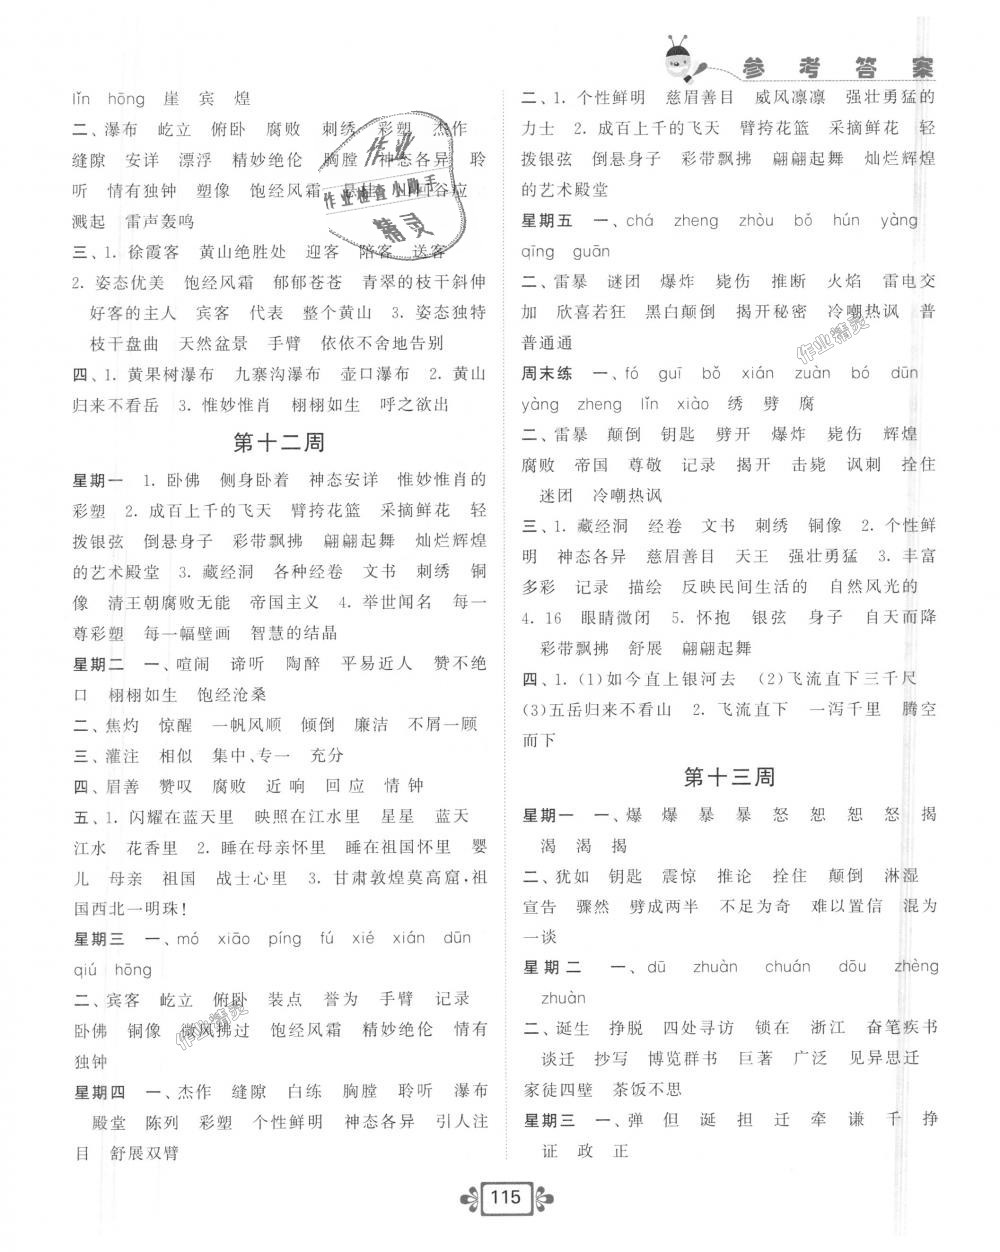 参考答案
lǐn hōng 崖 宾 煌
二、瀑布 屹立 俯卧 腐败 刺绣 彩塑 杰作
缝隙 安详 漂浮 精妙绝伦 胸膛 神态各异 聆
听 情有独钟 塑像 饱经风霜 悬挂 山回谷应
溅起 雷声轰鸣
三、1. 徐霞客 黄山绝胜处 迎客 陪客 送客
2. 姿态优美 饱经风霜 郁郁苍苍 青翠的枝干斜伸
好客的主人 宾客 代表 整个黄山 3. 姿态独特
枝干盘曲 天然盆景 手臂 依依不舍地告别
四、1. 黄果树瀑布 九寨沟瀑布 壶口瀑布 2. 黄山
归来不看岳 3. 惟妙惟肖 栩栩如生 呼之欲出
第十二周
星期一 1. 卧佛 侧身卧着 神态安详 惟妙惟肖的
彩塑 2. 成百上千的飞天 臂挎花篮 采摘鲜花 轻
拨银弦 倒悬身子 彩带飘拂 翩翩起舞 灿烂辉煌
的艺术殿堂 3. 藏经洞 各种经卷 文书 刺绣 铜
像 清王朝腐败无能 帝国主义 4. 举世闻名 每一
尊彩塑 每一幅壁画 智慧的结晶
星期二 一、喧闹 谛听 陶醉 平易近人 赞不绝
口 栩栩如生 饱经沧桑
二、焦灼 惊醒 一帆风顺 倾倒 廉洁 不屑一顾
三、灌注 相似 集中、专一 充分
四、眉善 赞叹 腐败 近响 回应 情钟
五、1. 闪耀在蓝天里 映照在江水里 星星 蓝天
江水 花香里 2. 睡在母亲怀里 睡在祖国怀里 婴
儿 母亲 祖国 战士心里 3. 甘肃敦煌莫高窟,祖
国西北一明珠!
星期三 一、mó xiāo píng fú xié xián dūn
qiú hōng
二、宾客 屹立 俯卧 装点 誉为 手臂 记录
卧佛 铜像 微风拂过 饱经风霜 精妙绝伦 情有
独钟
星期四 一、杰作 缝隙 白练 胸膛 聆听 瀑布
殿堂 陈列 彩塑 个性鲜明 神态各异 引人注
目 舒展双臂
二、1. 个性鲜明 慈眉善目 威风凛凛 强壮勇猛的
力士 2. 成百上千的飞天 臂挎花篮 采摘鲜花 轻
拨银弦 倒悬身子 彩带飘拂 翩翩起舞 灿烂辉煌
的艺术殿堂
星期五 一、chá zheng zhòu bǒ hún yàng
qīng guān
二、雷暴 谜团 爆炸 毁伤 推断 火焰 雷电交
加 欣喜若狂 黑白颠倒 揭开秘密 冷嘲热讽 普
普通通
周末练 一、fó guī bǒ xián zuàn bó dūn
yàng zheng lǐn xiào 绣 劈 腐
二、雷暴 颠倒 钥匙 劈开 爆炸 毁伤 辉煌
腐败 帝国 尊敬 记录 揭开 击毙 讽刺 拴住
迷团 冷嘲热讽
三、1. 藏经洞 经卷 文书 刺绣 铜像 2. 个性鲜
明 神态各异 慈眉善目 天王 强壮勇猛 3. 丰富
多彩 记录 描绘 反映民间生活的 自然风光的
4. 16 眼睛微闭 5. 怀抱 银弦 身子 自天而降
彩带飘拂 舒展 翩翩起舞
四、1. (1)如今直上银河去 (2)飞流直下三千尺
(3)五岳归来不看山 2. 飞流直下 一泻千里 腾空
而下
第十三周
星期一 一、爆 爆 暴 暴 怒 恕 恕 怒 揭
渴 渴 揭
二、犹如 钥匙 震惊 推论 拴住 颠倒 淋湿
宣告 骤然 劈成两半 不足为奇 难以置信 混为
一谈
星期二 一、dū zhuàn chuán dōu zhèng
zhuàn
二、诞生 挣脱 四处寻访 锁在 浙江 奋笔疾书
谈迁 抄写 博览群书 巨著 广泛 见异思迁
家徒四壁 茶饭不思
星期三 一、弹 但 诞 担 迁 牵 谦 千 挣
证 政 正
115
作业
作业检查小助手
精灵
作业精灵
作业精灵